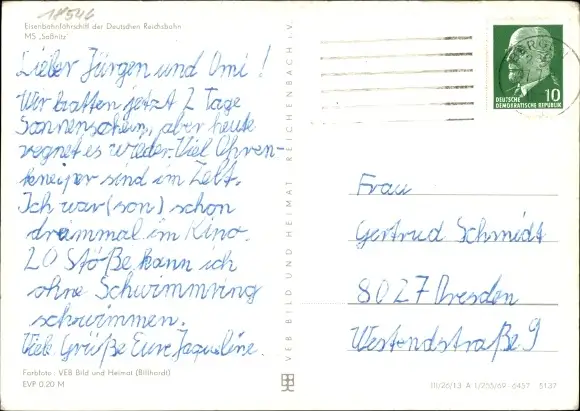 18546
Eisenbahnfährschiff der Deutschen Reichsbahn
MS „Saßnitz"
Lieber Jürgen und Omi!
Wir hatten jetzt 2 Tage
Sonnenschein, aber heute
regnet es wieder. Viel Ohren-
kneiper sind im Zelt.
Ich war (son) schon
dreimmal im Kino.
20 Stöße kann ich
ohne Schwimmring
schwimmen.
Viele Grüße Eure Jaqueline.
Farbfoto: VEB Bild und Heimat (Billhardt)
EVP 0.20 M
VEB BILD UND HEIMAT REICHENBACH i. V.
BERGEN
10
DEUTSCHE
DEMOKRATISCHE REPUBLIK
Frau
Gertrud Schmidt
8027 Dresden
Westendstraße 9
III/26/13 A 1/255/69 6457 5137